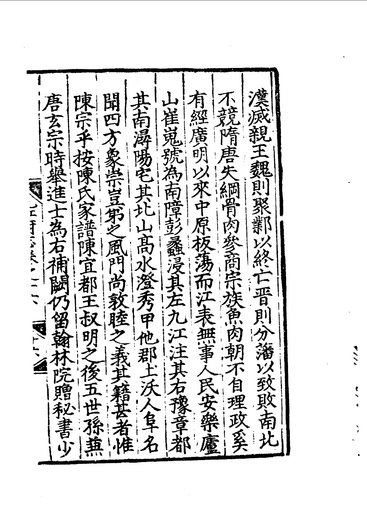 漢滅親王魏則聚鄴以終亡晉則分藩以致敗南北
不競隋唐失綱骨肉參商宗族魚肉朝不自理政奚
有經廣明以來中原板蕩而江表無事人民安樂廬
山崔嵬號為南障彭蠡浸其左九江注其右豫章都
其南潯陽宅其北山髙水澄秀甲他郡土沃人阜名
聞四方象崇豈弟之風門尚敦睦之義其籍甚者惟
陳宗乎按陳氏家譜陳宜都王叔明之後五世孫兼
唐玄宗時舉進士為右補闕仍留翰林院贈秘書少